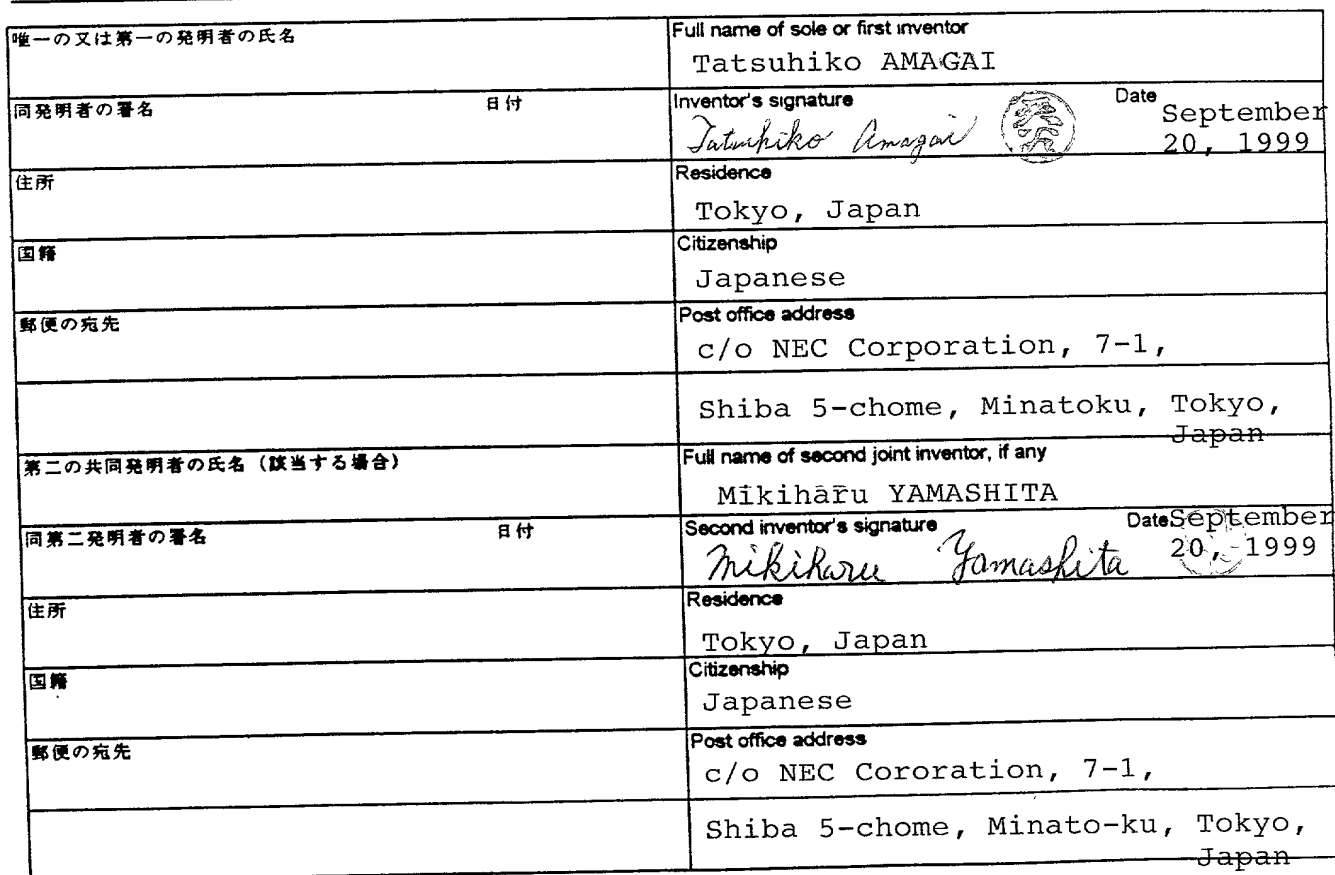 唯一の又は第一の発明者の氏名
Full name of sole or first inventor
Tatsuhiko AMAGAI
同発明者の署名 日付
Inventor's signature Date
Tatsuhiko Amagai September
20, 1999
住所
Residence
Tokyo, Japan
国籍
Citizenship
Japanese
郵便の宛先
Post office address
c/o NEC Corporation, 7-1,
Shiba 5-chome, Minatoku, Tokyo,
Japan
第二の共同発明者の氏名(該当する場合)
Full name of second joint inventor, if any
Mikiharu YAMASHITA
同第二発明者の署名 日付
Second inventor's signature Date September
Mikiharu Yamashita 20, 1999
住所
Residence
Tokyo, Japan
国籍
Citizenship
Japanese
郵便の宛先
Post office address
c/o NEC Cororation, 7-1,
Shiba 5-chome, Minato-ku, Tokyo,
Japan